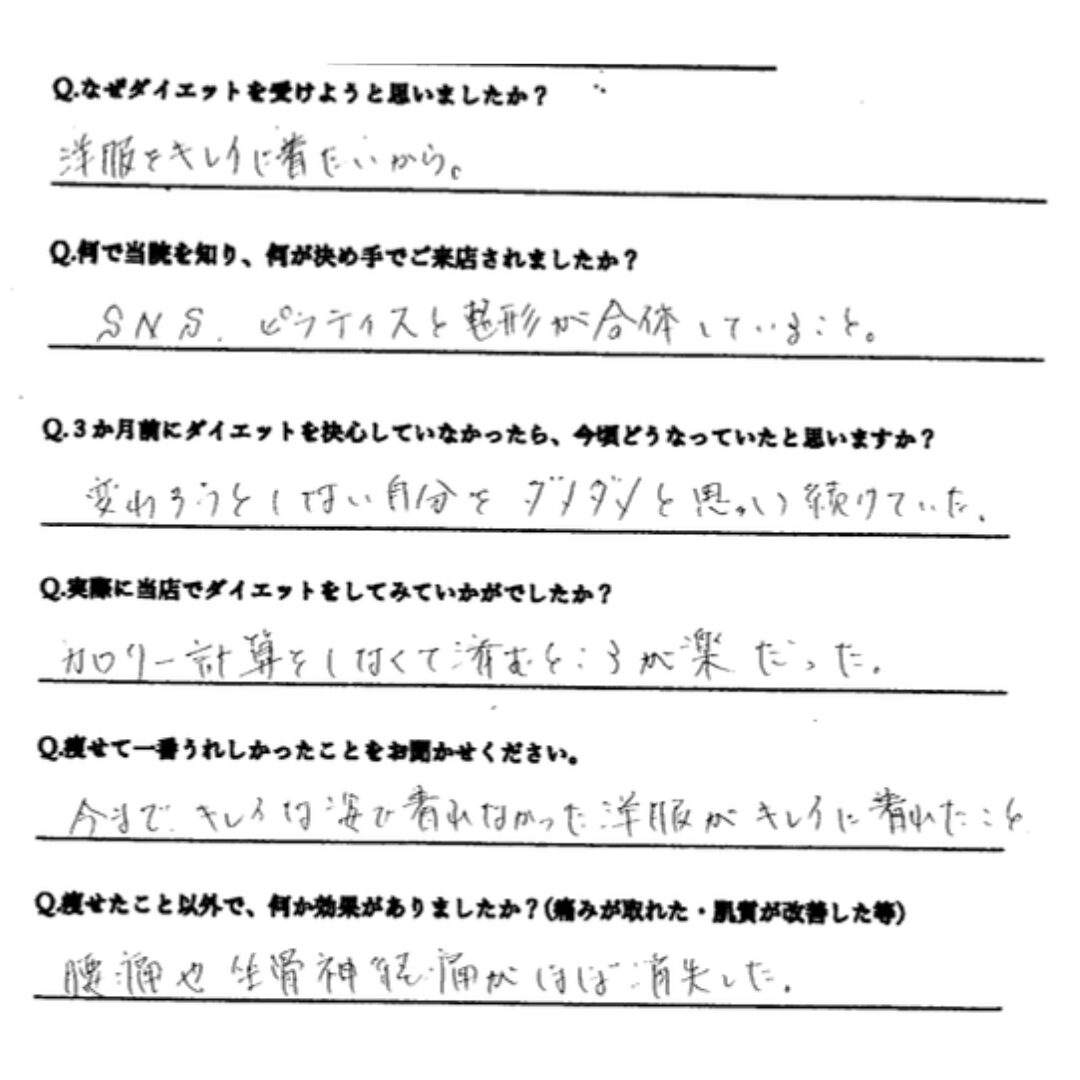 Q.なぜダイエットを受けようと思いましたか？
洋服をキレイに着たいから。
Q.何で当院を知り、何が決め手でご来店されましたか？
SNS. ピラティスと整形が合体していること。
Q.３か月前にダイエットを決心していなかったら、今頃どうなっていたと思いますか？
変わろうとしない自分をダメダメと思い続けていた.
Q.実際に当店でダイエットをしてみていかがでしたか？
カロリー計算をしなくて済むところが楽だった.
Q.痩せて一番うれしかったことをお聞かせください。
今まで.キレイな姿で着れなかった洋服がキレイに着れたこと
Q.痩せたこと以外で、何か効果がありましたか？(痛みが取れた・肌質が改善した等)
腰痛や坐骨神経痛がほぼ消失した.